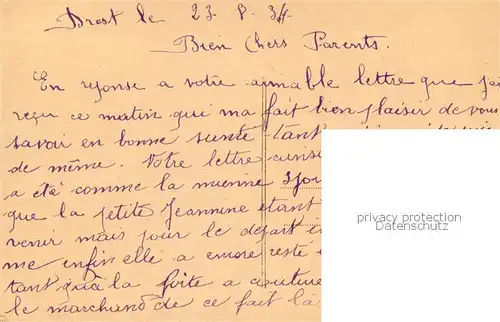 Brest le 23.8.34.
Bien Chers Parents.
En réponse a votre aimable lettre que j'ai
reçu ce matin qui ma fait bien plaisir de vous
savoir en bonne sante tant
de même. Votre lettre
a été comme la mienne
que la petite Jeannine étant
privacy protection
Datenschutz
venir mais pour le départ
me enfin elle a encore resté
tant qu'à la
le marchand de ce fait là